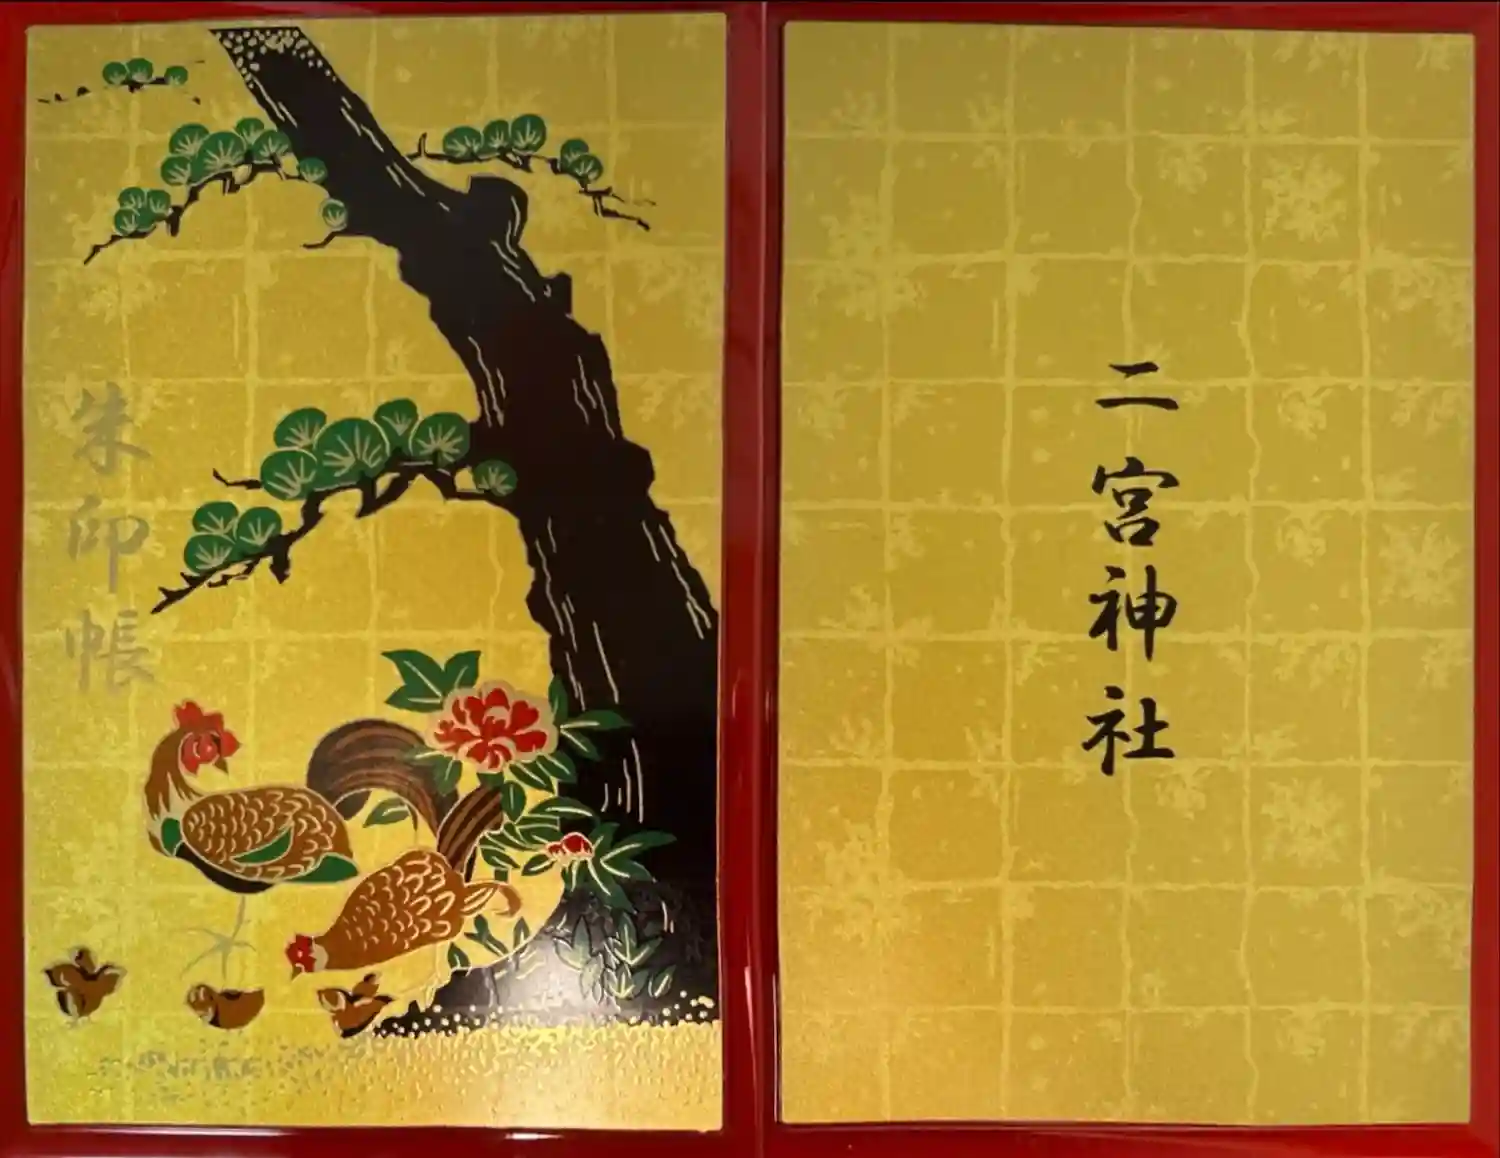 朱印帳
二宮神社